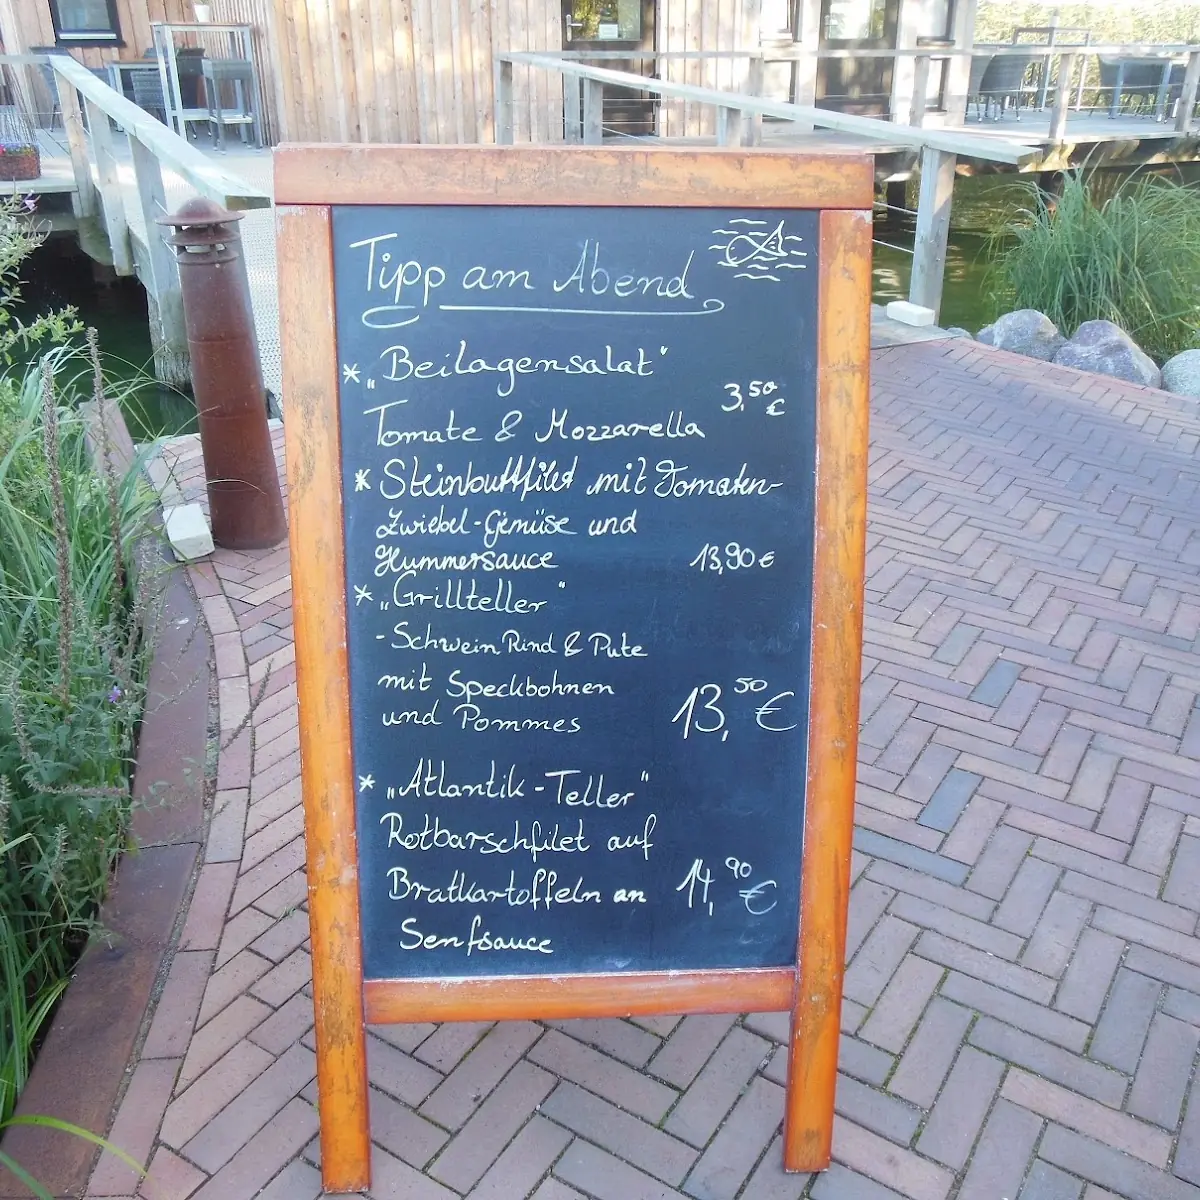 Tipp am Abend
* „Beilagensalat"
3,50 €
Tomate & Mozzarella
* Steinbuttfilet mit Tomaten-
Zwiebel-Gemüse und
Hummersauce 13,90 €
* „Grillteller"
- Schwein Rind & Pute
mit Speckbohnen
und Pommes 13,50 €
* „Atlantik-Teller"
Rotbarschfilet auf
Bratkartoffeln an 14,90 €
Senfsauce